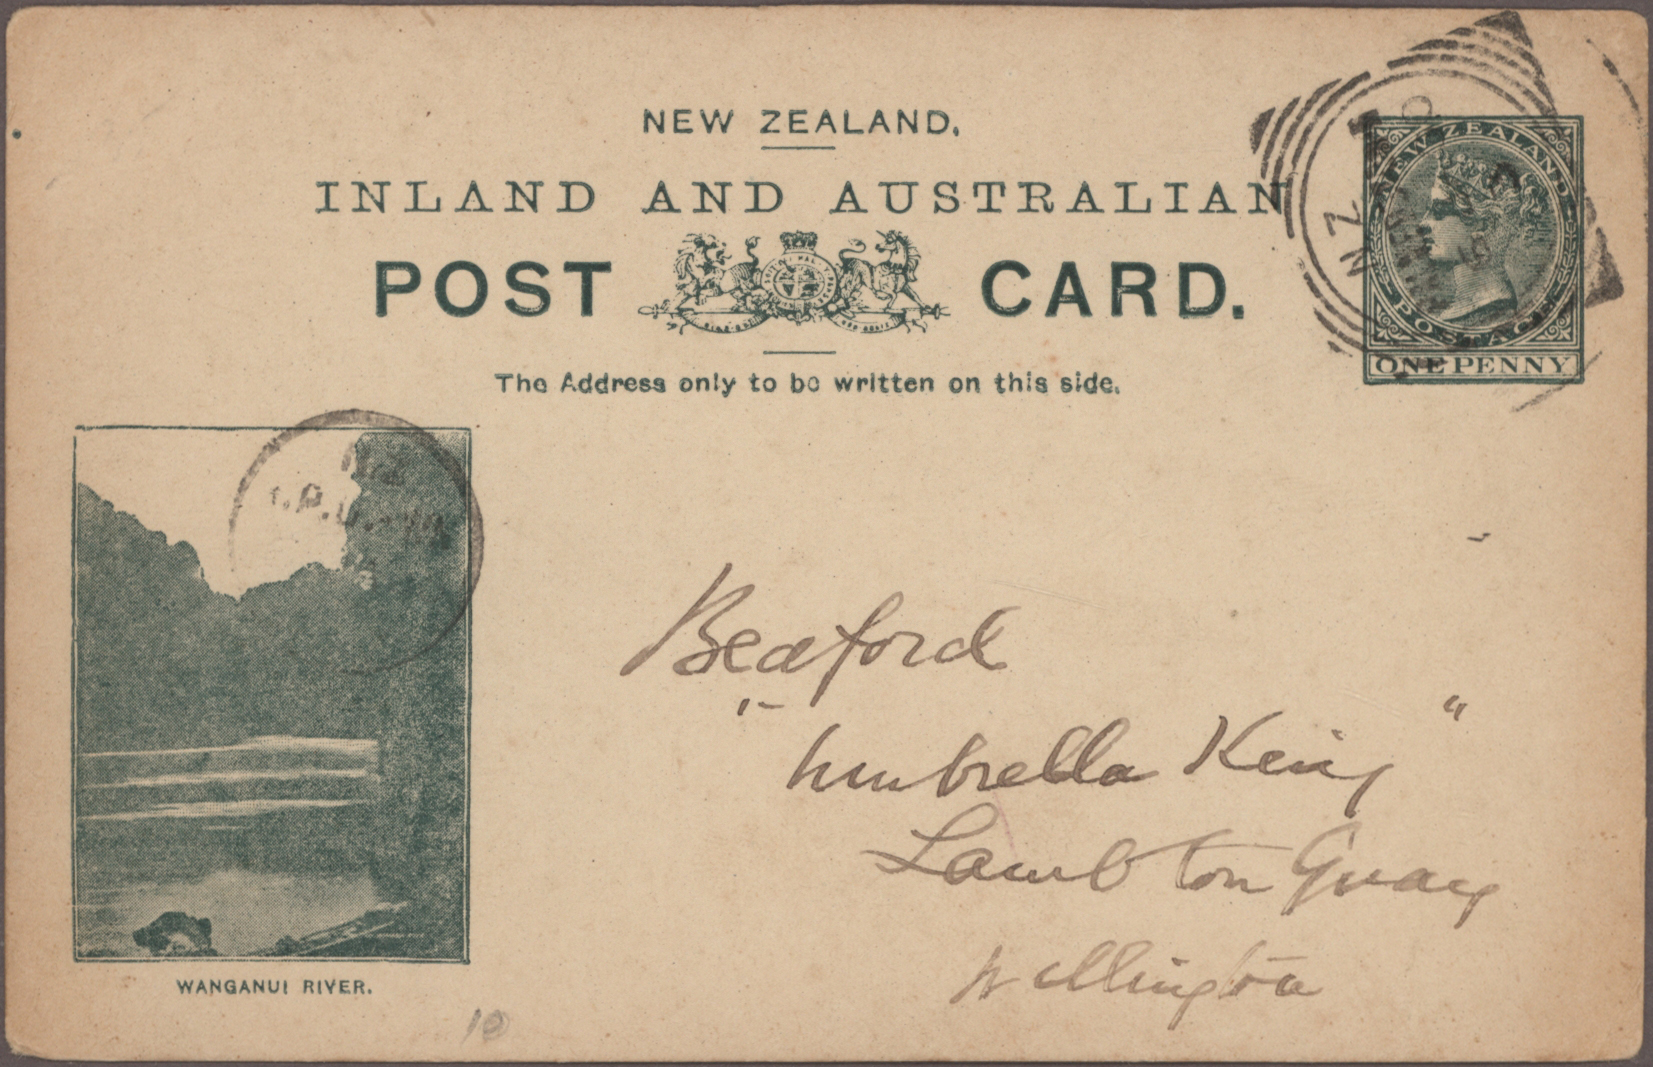 NEW ZEALAND.
INLAND AND AUSTRALIAN
POST CARD.
The Address only to be written on this side.
NEW ZEALAND
POSTAGE
ONE PENNY
NZ
Beaford
"Umbrella King"
Lambton Quay
Wellington
WANGANUI RIVER.
10